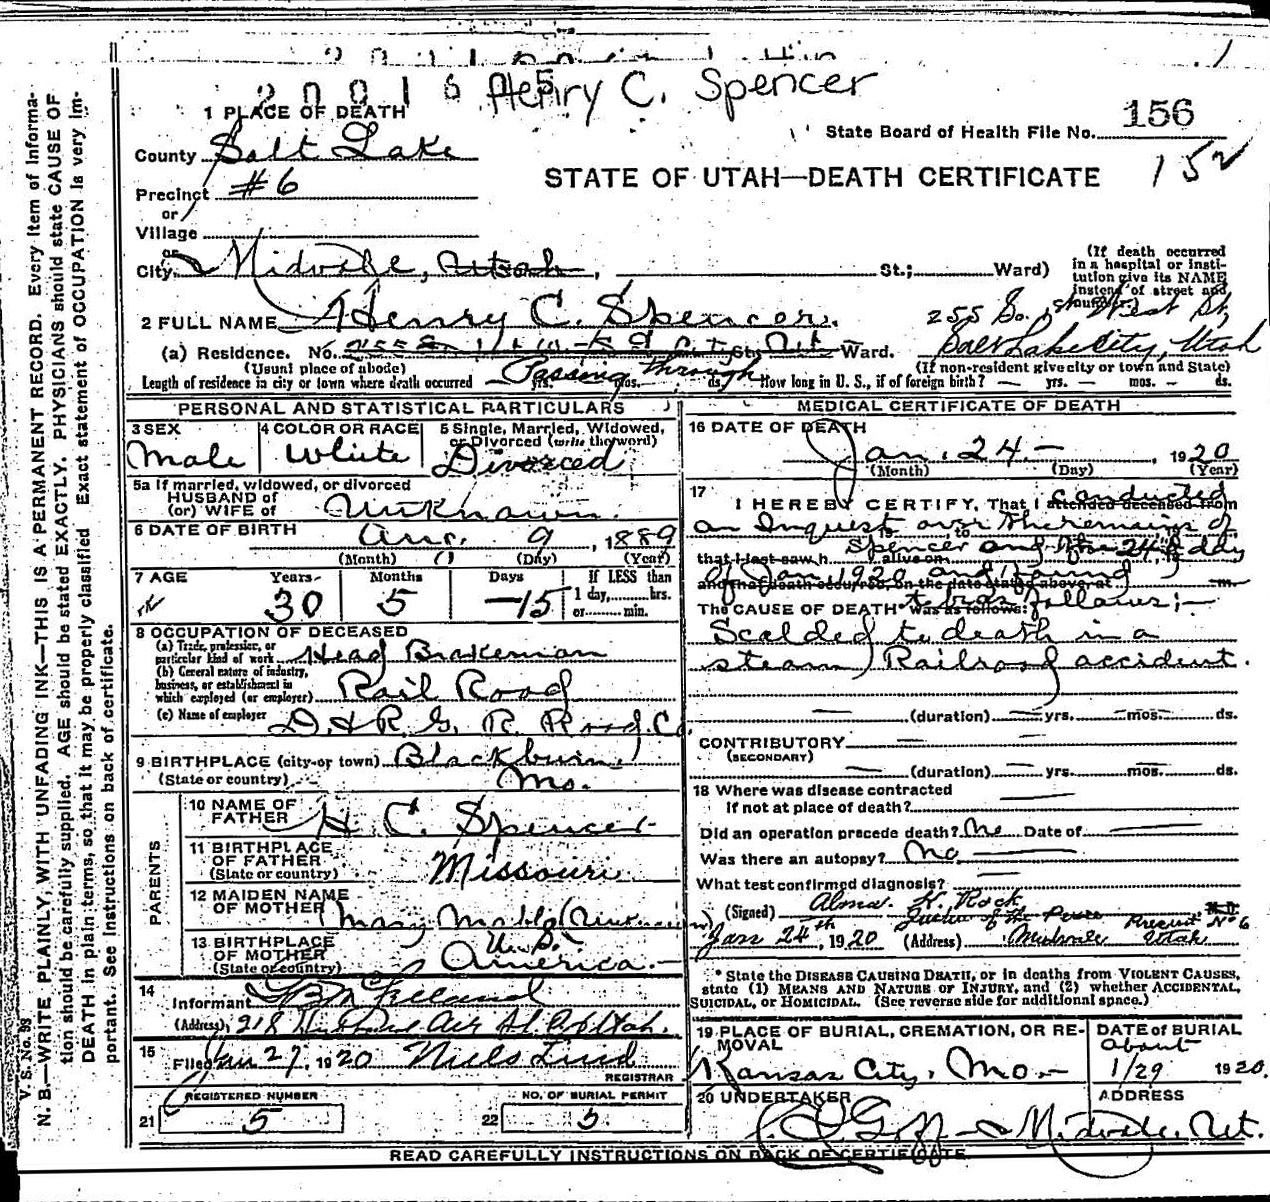 Henry C. Spencer
1 PLACE OF DEATH
State Board of Health File No. 156
County Salt Lake
152
STATE OF UTAH—DEATH CERTIFICATE
Precinct #6
or
Village
or
City Midvale, Utah, St.; Ward)
(If death occurred in a hospital or institution give its NAME instead of street and number.)
2 FULL NAME Henry C. Spencer.
255 So. West St,
Salt Lake City, Utah
(a) Residence. No. St., Ward.
(Usual place of abode)
(If non-resident give city or town and State)
Length of residence in city or town where death occurred Passing through yrs. mos. ds. How long in U. S., if of foreign birth? — yrs. — mos. — ds.
PERSONAL AND STATISTICAL PARTICULARS
3 SEX
Male
4 COLOR OR RACE
White
5 Single, Married, Widowed,
or Divorced (write the word)
Divorced
5a If married, widowed, or divorced
HUSBAND of
(or) WIFE of Unknown.
6 DATE OF BIRTH Aug. 9, 1889
(Month) (Day) (Year)
7 AGE Years Months Days If LESS than
30 5 —15 1 day, hrs.
or min.
8 OCCUPATION OF DECEASED
(a) Trade, profession, or
particular kind of work Head Brakeman
(b) General nature of industry,
business, or establishment in
which employed (or employer) Rail Road
(c) Name of employer D. & R. G. R. Road. Co.
9 BIRTHPLACE (city or town) Blackburn,
(State or country) Mo.
PARENTS
10 NAME OF
FATHER H. C. Spencer
11 BIRTHPLACE
OF FATHER
(State or country) Missouri
12 MAIDEN NAME
OF MOTHER Mary (Unknown)
13 BIRTHPLACE
OF MOTHER
(State or country) U. S. America.
14
Informant
(Address) 218
15
Filed Jan 27, 1920 Niels Lind
REGISTRAR
REGISTERED NUMBER
21 5
NO. OF BURIAL PERMIT
22 5
MEDICAL CERTIFICATE OF DEATH
16 DATE OF DEATH
Jan. 24.—, 1920
(Month) (Day) (Year)
17
I HEREBY CERTIFY, That I attended deceased from conducted
an Inquest over the remains of
that I last saw h alive on Spencer and the 24th day
of Jan 1920 and found
and that death occurred, on the date stated above, at m.
The CAUSE OF DEATH was as follows: to be as follows;—
Scalded to death in a
steam Railroad accident.
(duration) yrs. mos. ds.
CONTRIBUTORY
(SECONDARY)
(duration) yrs. mos. ds.
18 Where was disease contracted
if not at place of death?
Did an operation precede death? No Date of
Was there an autopsy? No
What test confirmed diagnosis?
(Signed) Alma K. Rock M.D.
Justice of the Peace Precinct No 6
Jan 24th, 1920 (Address) Midvale Utah
* State the DISEASE CAUSING DEATH, or in deaths from VIOLENT CAUSES,
state (1) MEANS AND NATURE OF INJURY, and (2) whether ACCIDENTAL,
SUICIDAL, or HOMICIDAL. (See reverse side for additional space.)
19 PLACE OF BURIAL, CREMATION, OR REMOVAL
Kansas City, Mo.—
DATE of BURIAL
about
1/29 1920.
20 UNDERTAKER
Goff
ADDRESS
Midvale, Ut.
READ CAREFULLY INSTRUCTIONS ON BACK OF CERTIFICATE
V. S. No. 99
N. B.—WRITE PLAINLY, WITH UNFADING INK—THIS IS A PERMANENT RECORD. Every item of information should be carefully supplied. AGE should be stated EXACTLY. PHYSICIANS should state CAUSE OF DEATH in plain terms, so that it may be properly classified. Exact statement of OCCUPATION is very important. See instructions on back of certificate.